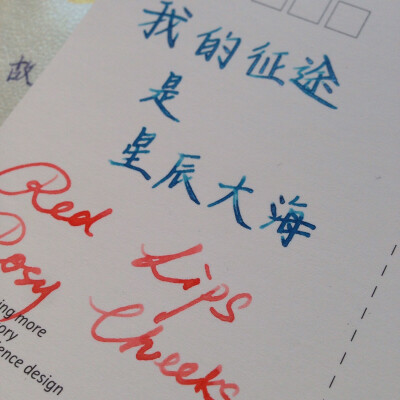 我的征途
是
星辰大海
故
Red Lips
Rosy Cheeks
ing more
ory
ence design